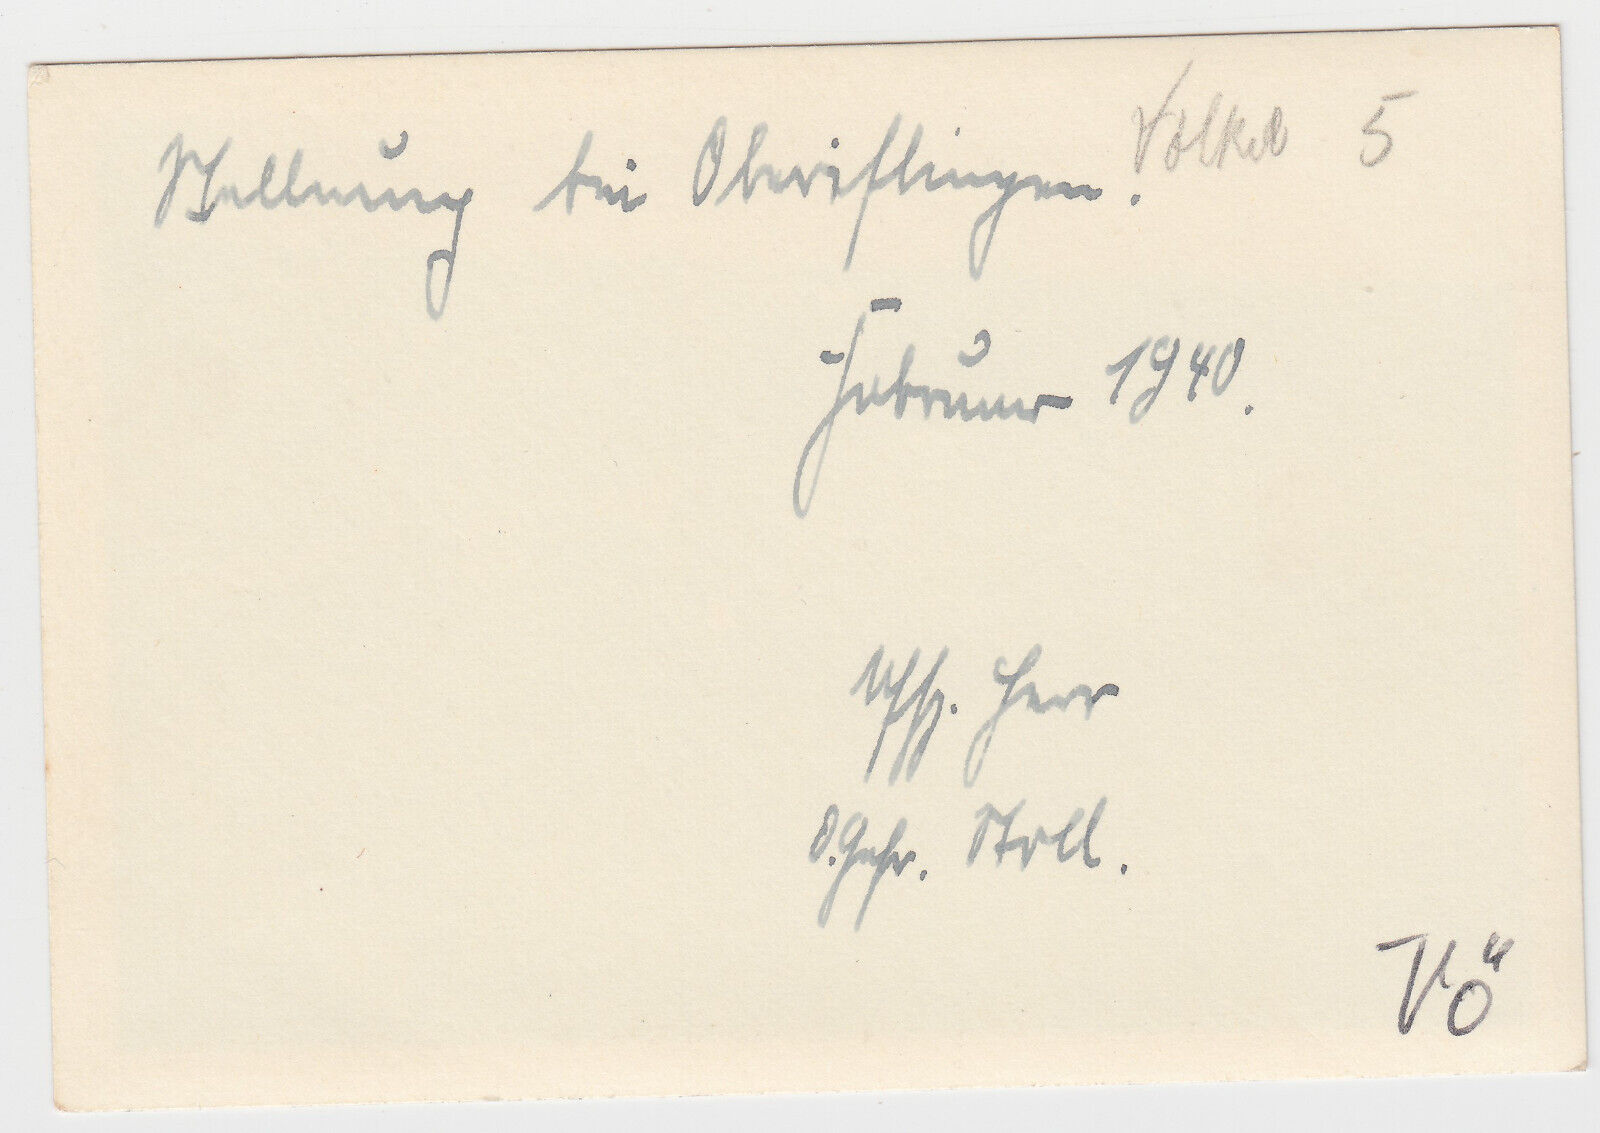 Stellung bei Oberiflingen. Völkel 5
Februar 1940.
Uffz. Herr
O.Gefr. Stoll.
Vö